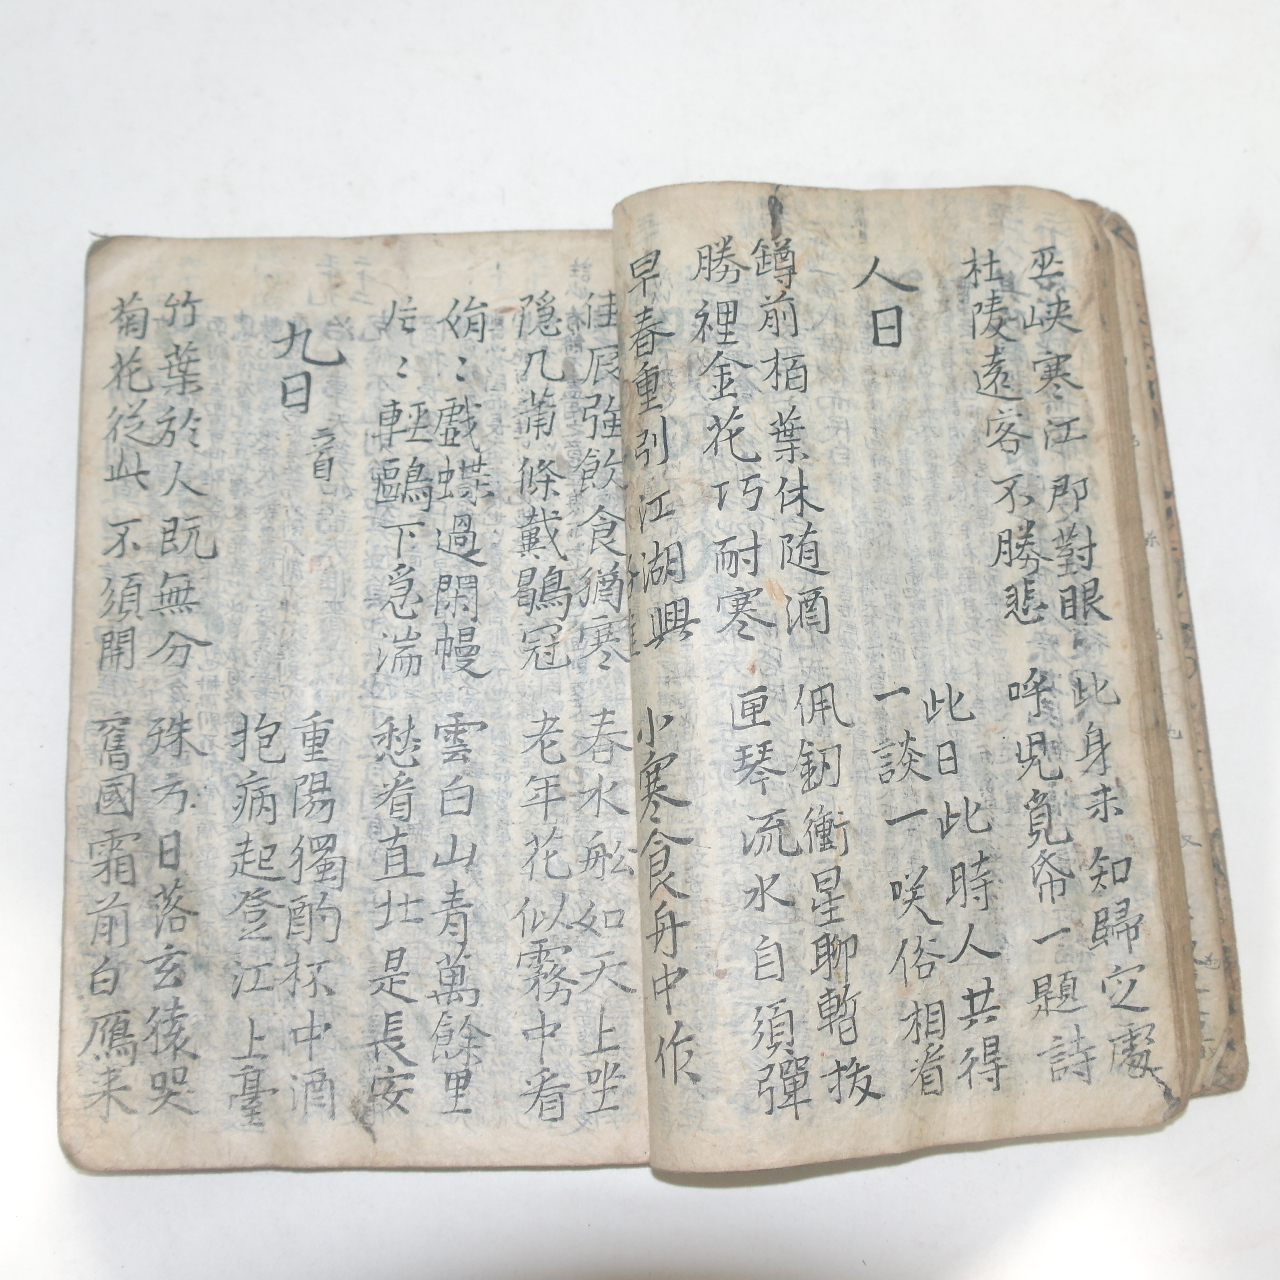 巫峽寒江那對眼 此身未知歸定處
杜陵遠客不勝悲 呼児覓帋一題詩
人日 此日此時人共得
一談一咲俗相看
鐏前栢葉休随酒 佩釼衝星聊暫拔
勝裡金花巧耐寒 匣琴流水自須彈
早春重引江湖興
小寒食舟中作
佳辰強飲食猶寒 春水舩如天上坐
隠几蕭條戴鶡冠 老年花似霧中看
娟〻戯蝶過閑幔 雲白山青萬餘里
片〻輕鷗下急湍 愁看直北是長安
九日 二首 重陽獨酌杯中酒
抱病起登江上臺
竹葉於人既無分 殊方日落玄猿哭
菊花従此不須開 舊國霜前白鴈来